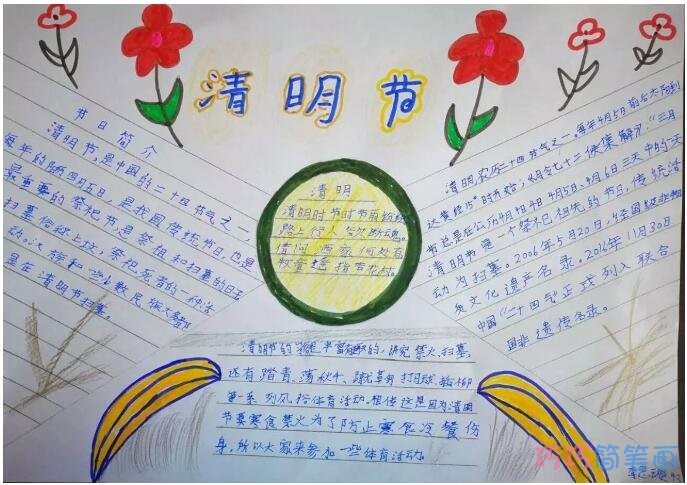 清明节
节日简介
清明节,是中国的二十四节气之一,
每年的阳历四月五日,是我国传统节日,也是
最重要的祭祀节是祭祖和扫墓的日子
扫墓俗称上坟,祭祀死者的一种活
动。汉族和一些少数民族大多都
是在清明节扫墓。
清明
清明时节雨纷纷
路上行人欲断魂。
借问酒家何处有
牧童遥指杏花村。
清明农历二十四节气之一。每年4月5日前后太阳到
达黄经15°时开始,
节总是在公历4月4日4月5日、4月6日三天中的一天
清明节是一个祭祀祖先的节日,传统活
动为扫墓。2006年5月20日,
文化遗产名录。2016年11月30日
中国“二十四气”正式列入联合
国非遗传名录。
清明节的习俗是丰富有趣的,讲究禁火、扫墓
还有踏青、荡秋千、蹴鞠、打马球、插柳
等一系列风俗体育活动。相传这是因为清明
节要寒食禁火为了防止寒食冷餐伤
身,所以大家来参加一些体育活动。
简笔画